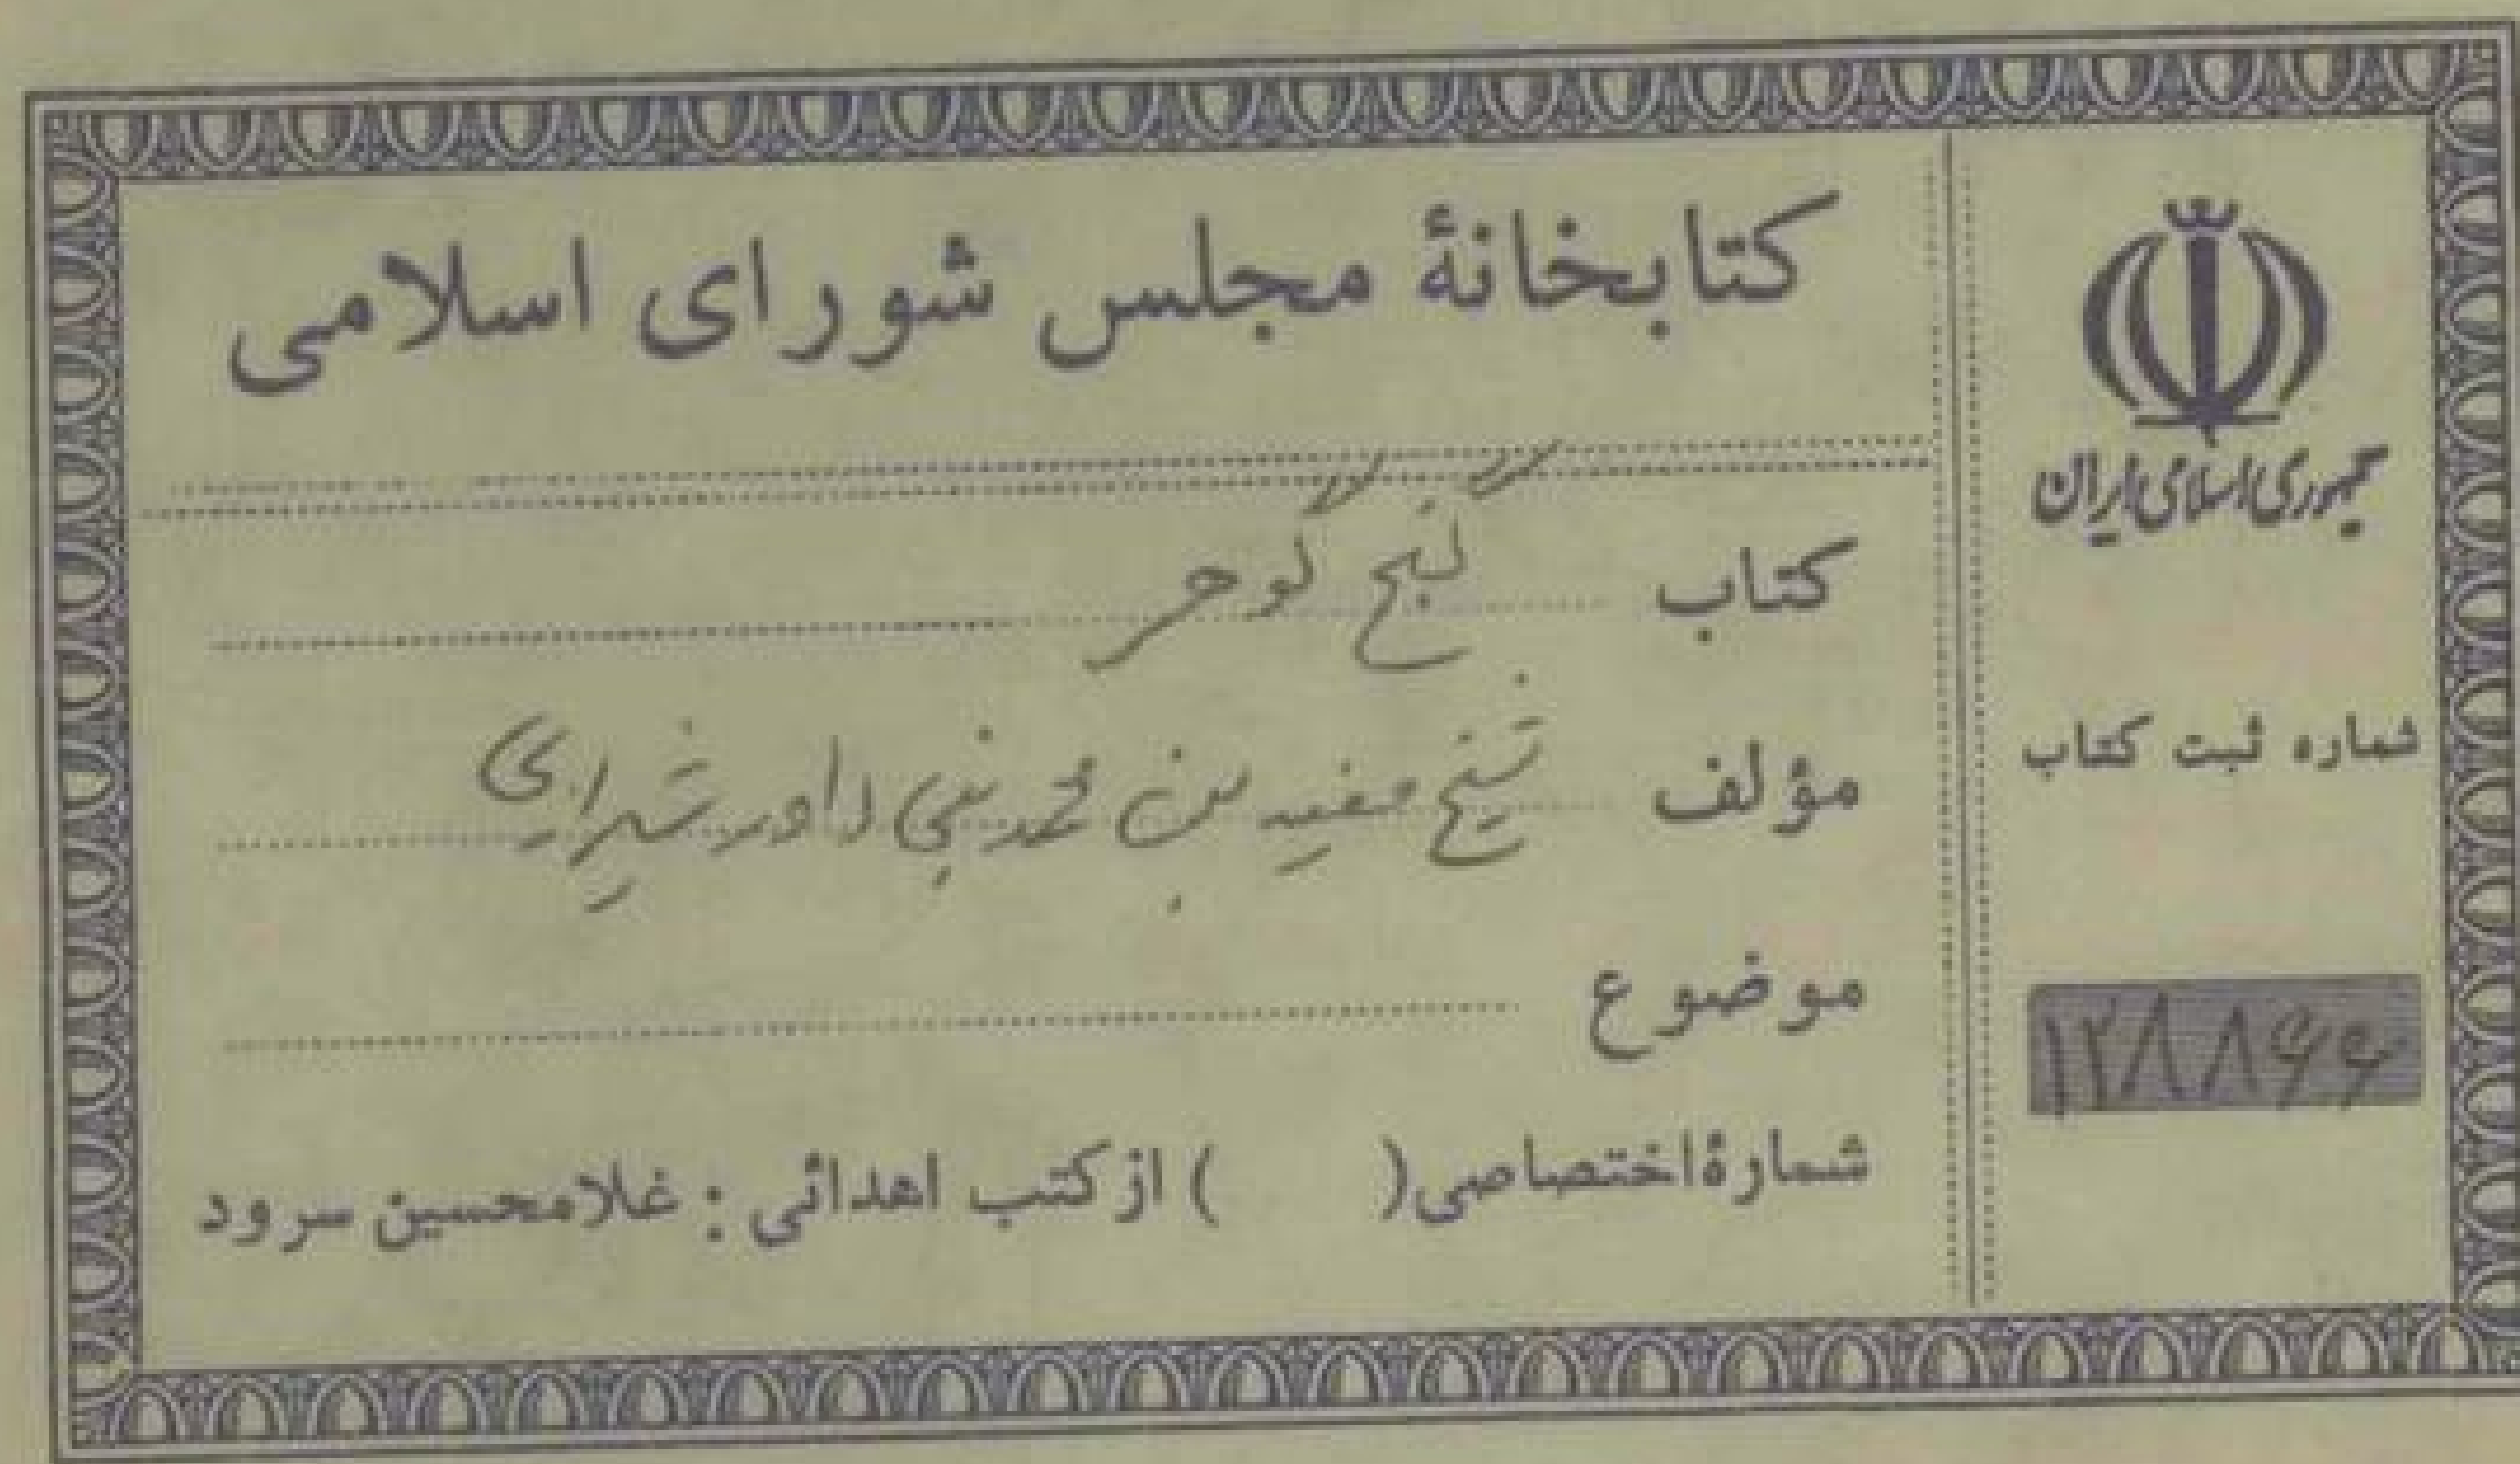 جمهوری اسلامی ایران
شماره ثبت کتاب
۱۲۸۸۶۶
کتابخانهٔ مجلس شورای اسلامی
کتاب گنج گوهر
مؤلف شیخ مفید بن محمد نبی داور شیرازی
موضوع
شمارهٔ اختصاصی ( ) از کتب اهدائی : غلامحسین سرود